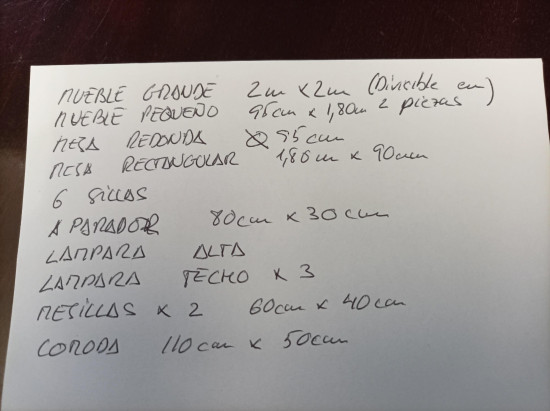 MUEBLE GRANDE 2m x 2m (Divisible en)
MUEBLE PEQUEÑO 95cm x 1,80cm 2 piezas
MESA REDONDA 95cm
MESA RECTANGULAR 1,80cm x 90cm
6 SILLAS
APARADOR 80cm x 30cm
LAMPARA ALTA
LAMPARA TECHO x 3
MESILLAS x 2 60cm x 40cm
COMODA 110cm x 50cm